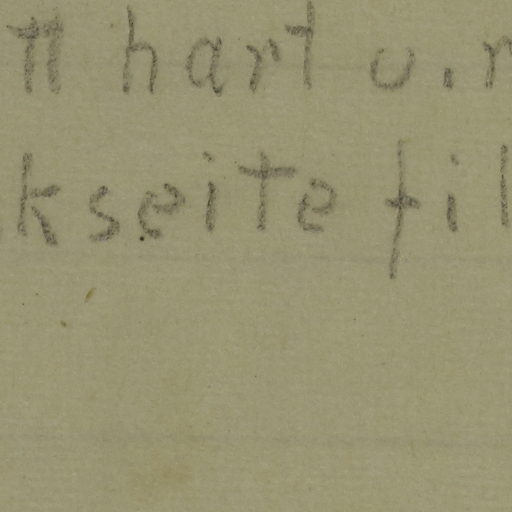 tt hart u. r
kseite fil